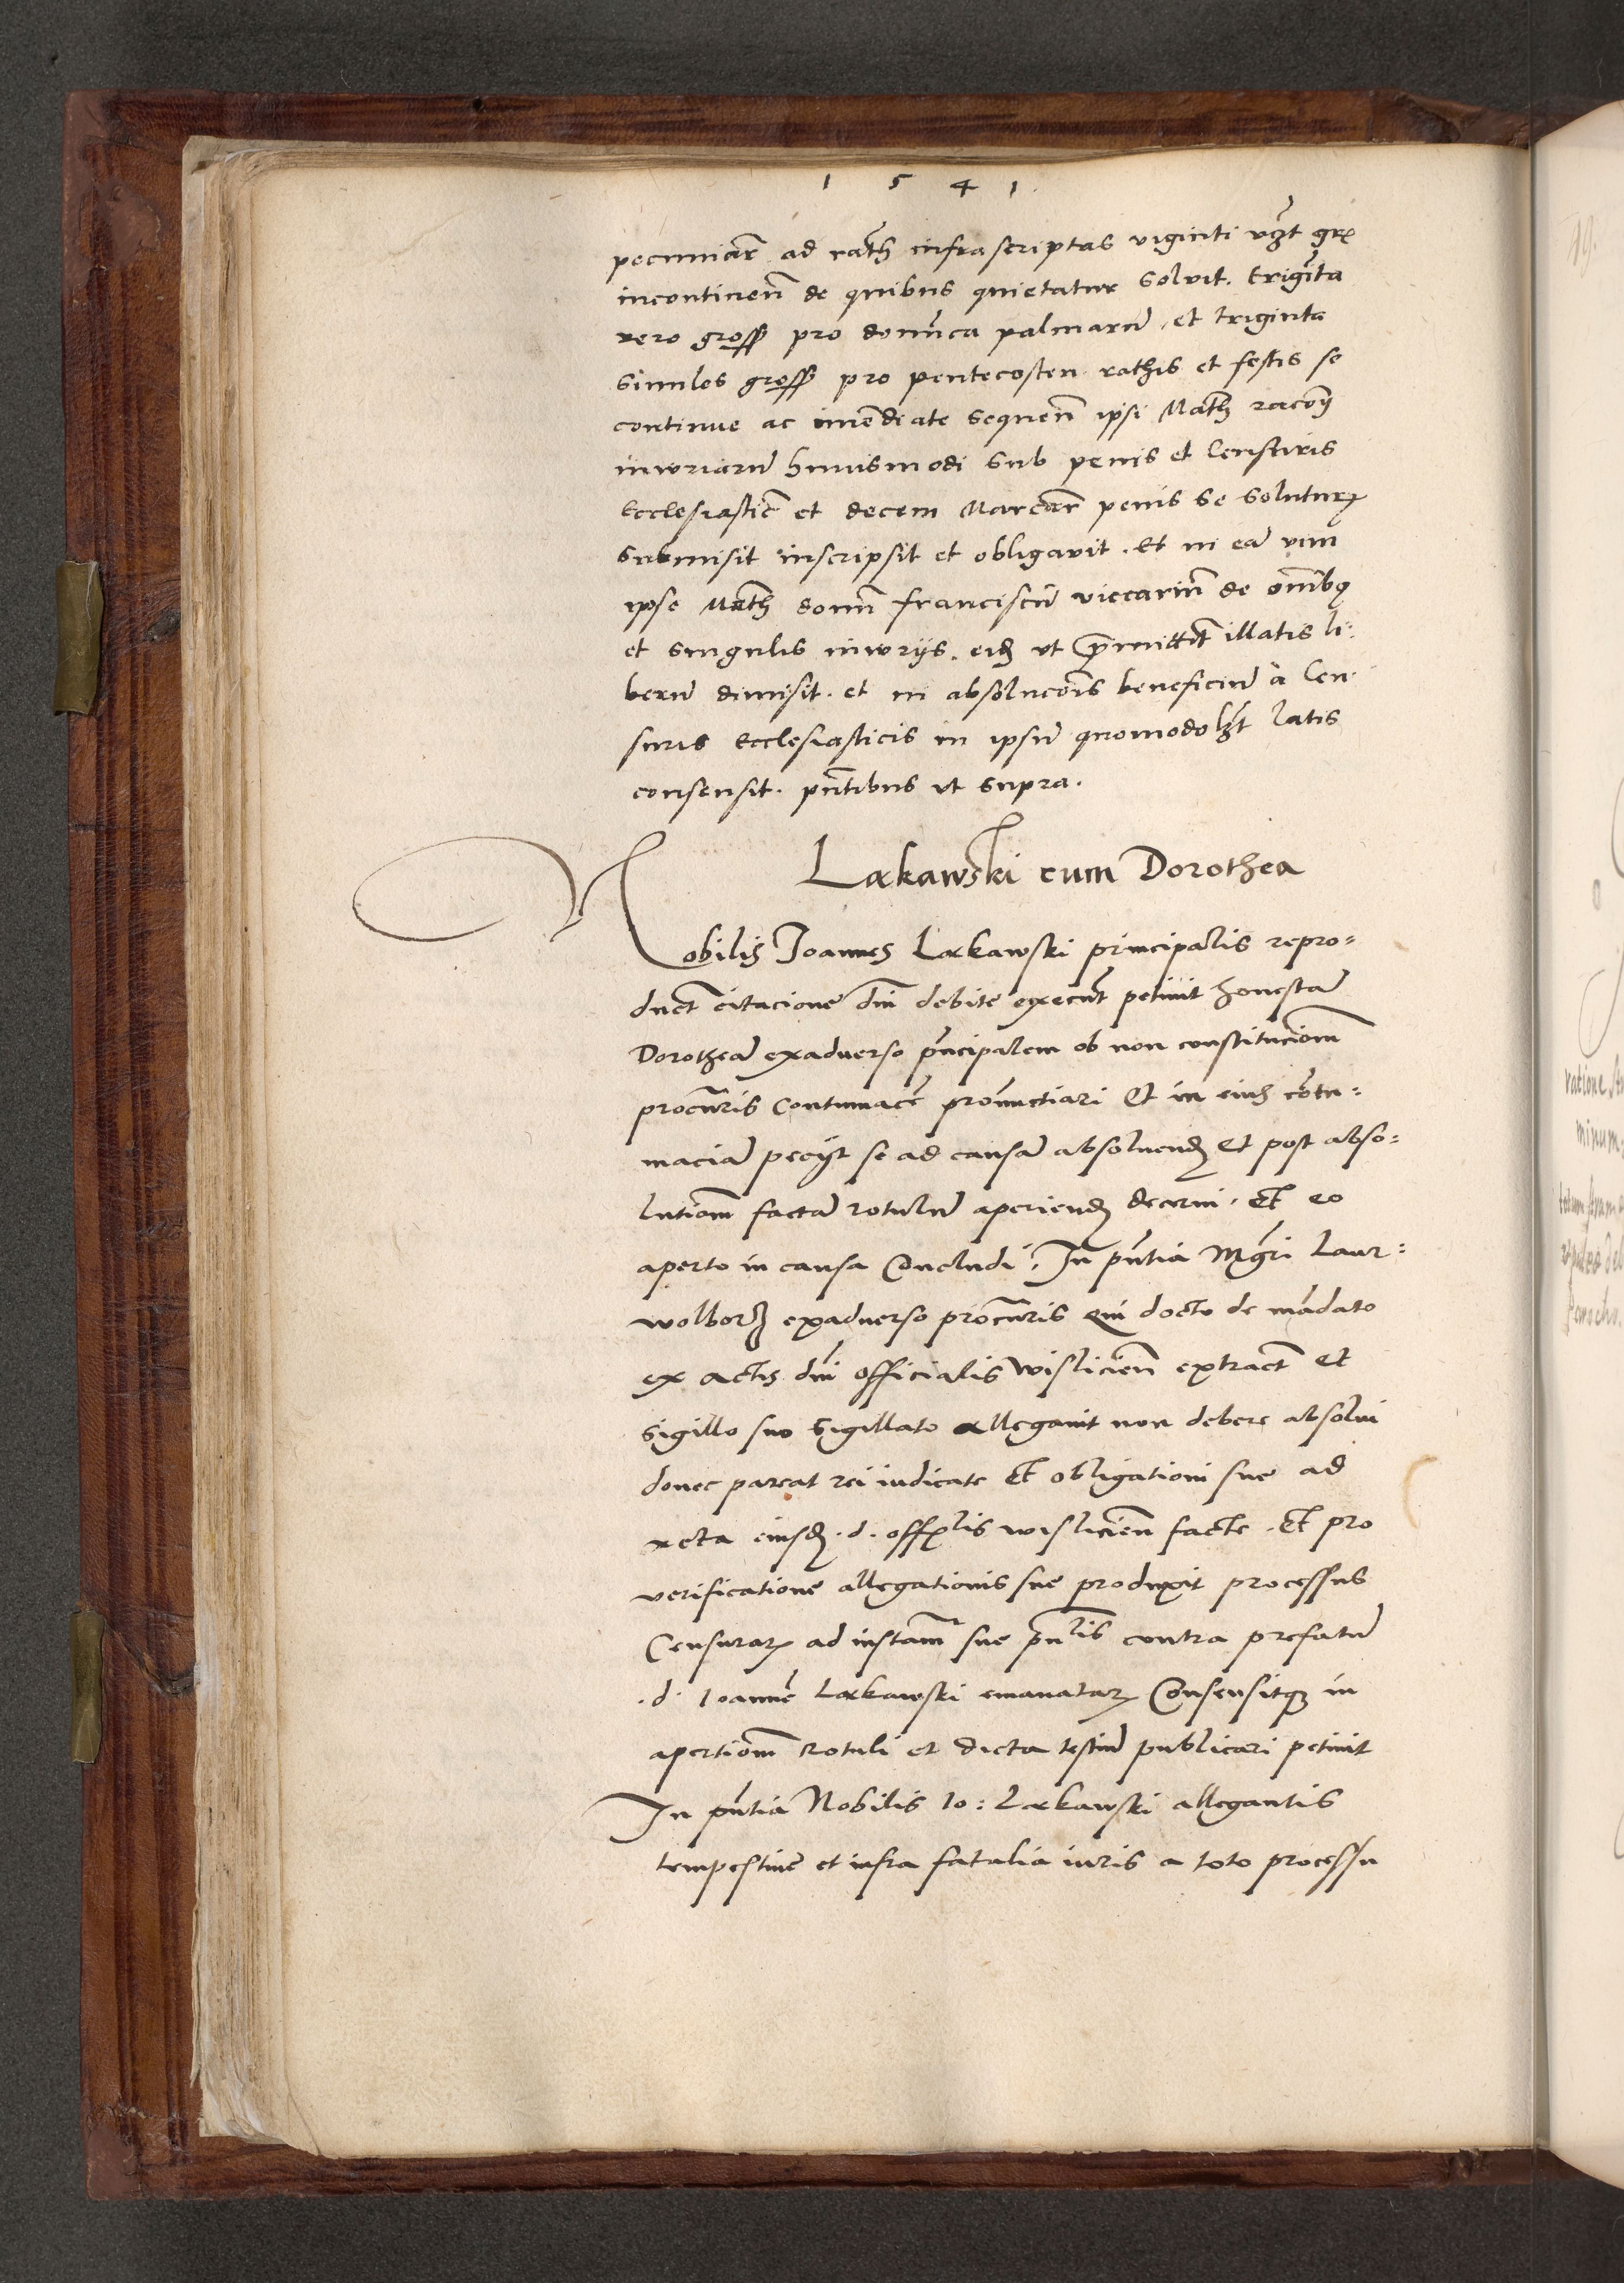 1 5 4 1
pecuniar̄ ad rath̄ infrascriptas viginti vꝫt gr̄
incontinen̄ de quibus quietatur solvit. triginta
vero gross pro domīca palmarū et triginta
similes gross pro pentecosten rathis et festis se
continue ac imediate sequen̄ ipsi Math̄ racōē
iniuriarū huiusmodi sub penis et censuris
Ecclesiastic̄ et decem Marcar̄ penis se soluturꝫ
submisit inscripsit et obligavit. Et in eā vim
ipse Math̄ domīn̄ franciscū viccariū de omībꝫ
et singulis iniurijs. eidꝫ ut p̄mittit̄ illatis li:
berū dimisit. et in absolucōis beneficiū à Cen:
suris Ecclesiasticis in ipsū quomodolꝫt latis
consensit. pn̄tibus ut supra.
Lækawski cum Dorothea
Nobilis Joannes Lækawski principalis repro=
duct̄ citacione dn̄i debite execut̄ petiuit honestā
Dorotheā exaduerso pn̄cipalem ob non constitucionē
procuris̄ Contumacē pronūctiari Et in eius cōtu=
maciā pecijt se ad causā absoluendꝫ Et post abso=
lutionē factā rotulū aperiendꝫ decerni. Et eo
aperto in causa Concludi. In pn̄tia Mgr̄i Laur=
wolborꝫ exaduerso procur̄is qui docto de mādato
ex actis dn̄i officialis wislicien̄ extract̄ et
sigillo suo sigillato allegauit non debere absolui
donec pareat rei iudicate Et obligationi sue ad
acta eiusdꝫ .d. offlis̄ wislicien̄ facte. Et pro
verificatione allegationis sue produxit processus
Censurarꝫ ad instam̄ sue pn̄lis contra prefatū
.d. Joannē Lækawski emanatarꝫ Consensitqꝫ in
apertionē Rotuli et dicta testiū publicari petiuit
In pn̄tia Nobilis Jo: Lækawski allegantis
tempestiue et infra fatalia iuris a toto processu
19
ratione
minum